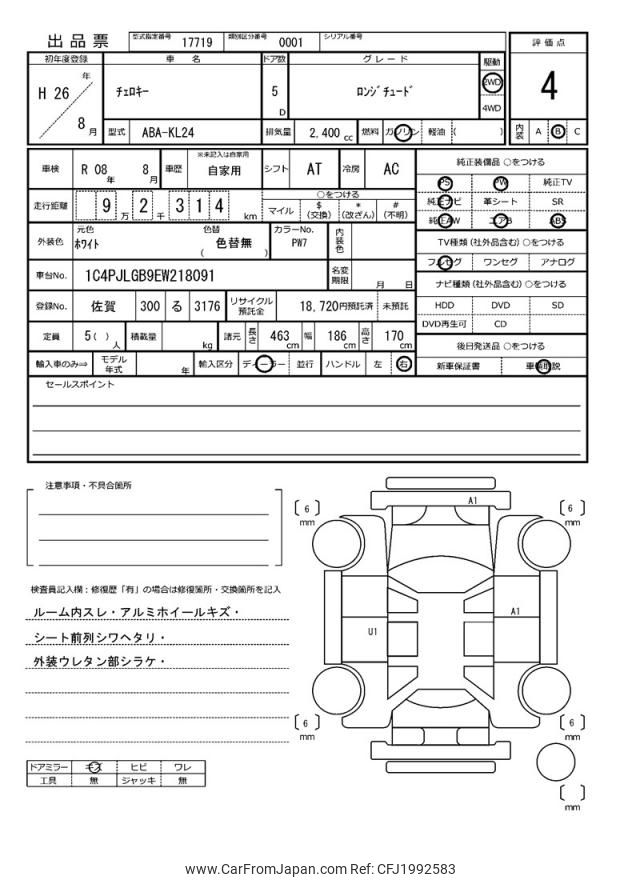 出品票 型式指定番号 17719 類別区分番号 0001 シリアル番号
評価点
4
内装 A B C
初年度登録 車名 ドア数 グレード 駆動
H 26 年 8 月 チェロキー 5 D ロンジチュード 2WD 4WD
型式 ABA-KL24 排気量 2,400 cc 燃料 ガソリン 軽油 ( )
車検 R 08 年 8 月 車歴 ※未記入は自家用 自家用 シフト AT 冷房 AC
走行距離 9 万 2 千 3 1 4 km ○をつける
マイル $ (交換) * (改ざん) # (不明)
外装色 元色 ホワイト 色替 ( 色替無 ) カラーNo. PW7 内装色
車台No. 1C4PJLGB9EW218091 名変期限 月 日
登録No. 佐賀 300 る 3176 リサイクル預託金 18,720円預託済 未預託
定員 5( ) 人 積載量 kg 諸元 長さ 463 cm 幅 186 cm 高さ 170 cm
輸入車のみ⇒ モデル年式 年 輸入区分 ディーラー 並行 ハンドル 左 右
純正装備品 ○をつける
PS PW 純正TV
純正ナビ 革シート SR
純正AW エアB ABS
TV種類 (社外品含む) ○をつける
フルセグ ワンセグ アナログ
ナビ種類 (社外品含む) ○をつける
HDD DVD SD
DVD再生可 CD
後日発送品 ○をつける
新車保証書 車輌取説
セールスポイント
注意事項・不具合箇所
検査員記入欄：修復歴「有」の場合は修復箇所・交換箇所を記入
ルーム内スレ・アルミホイールキズ・
シート前列シワヘタリ・
外装ウレタン部シラケ・
ドアミラー キズ ヒビ ワレ
工具 無 ジャッキ 無
A1
[ 6 ] mm
[ 6 ] mm
A1
U1
[ 6 ] mm
[ 6 ] mm
[ ] mm
www.CarFromJapan.com Ref: CFJ1992583